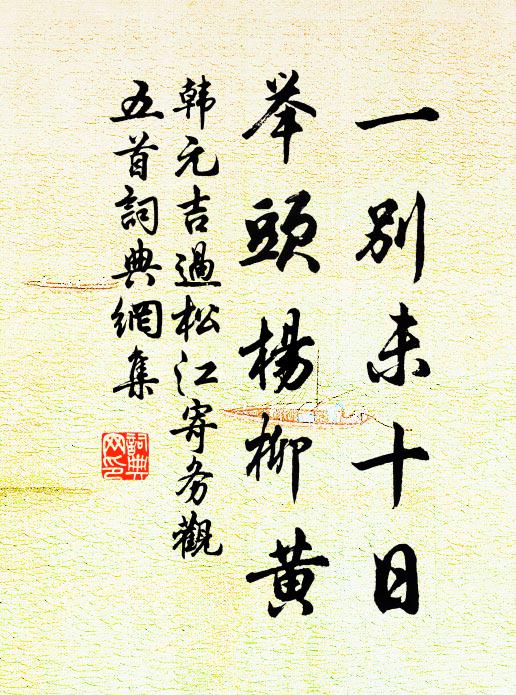 一別未十日
举頭楊柳黄
韩元吉過松江寄务觀
五首詞典網集
詞典网印